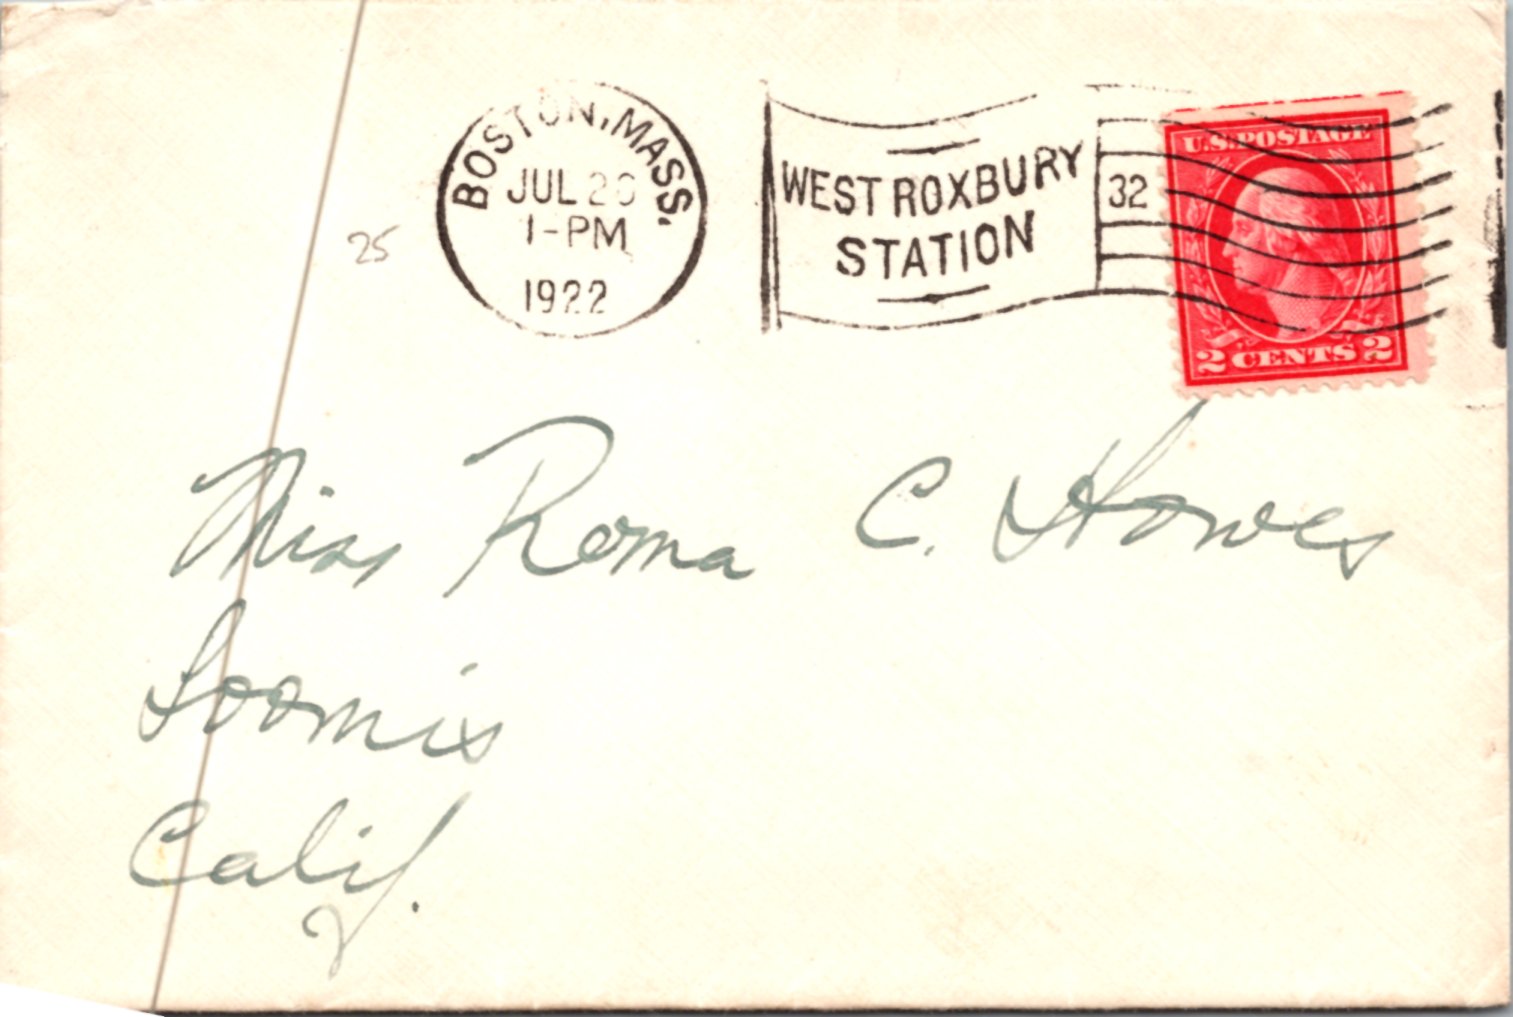 BOSTON, MASS.
JUL
1-PM
1922
WEST ROXBURY
STATION
32
U.S. POSTAGE
2 CENTS 2
25
Miss Roma C. Howes
Loomis
Calif.